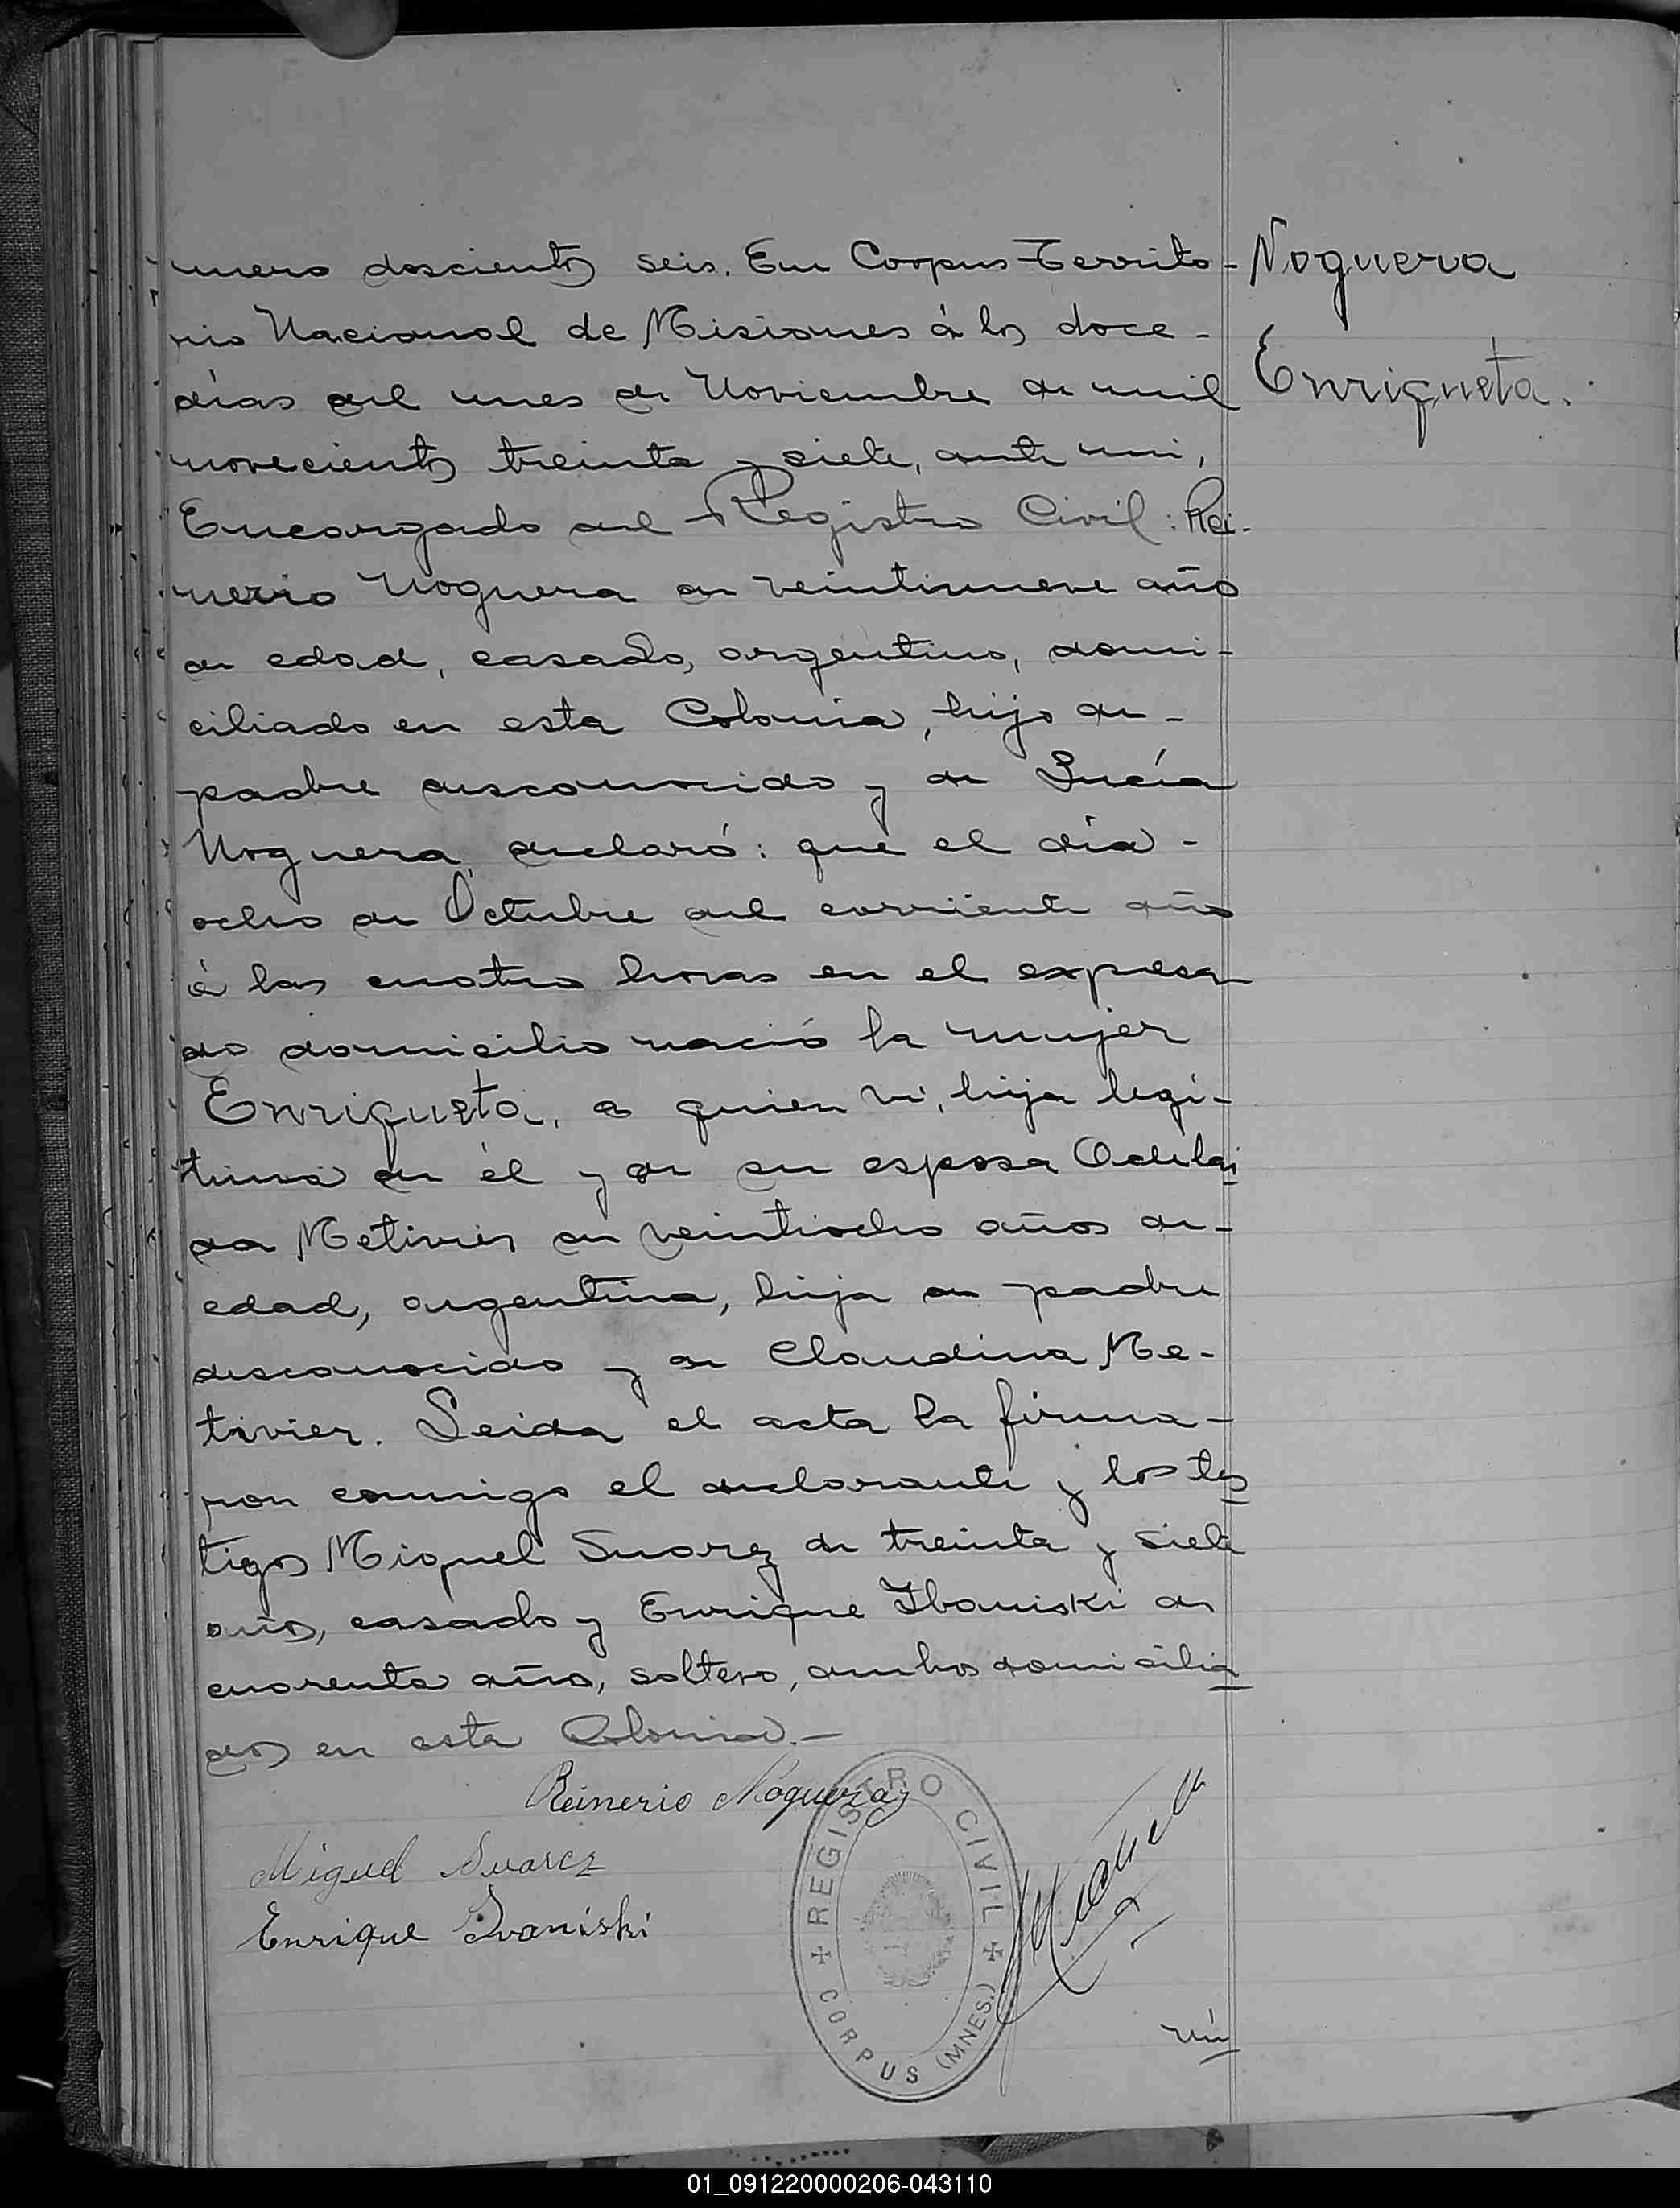 mero doscientos seis. En Corpus Territo-
Noguera
rio Nacional de Misiones á los doce-
días del mes de Noviembre de mil
Enriqueta.
novecientos treinta y siete, ante mi,
Encargado del Registro Civil: Rei-
nerio Noguera de veintinueve años
de edad, casado, argentino, domi-
ciliado en esta Colonia, hijo de-
padre desconocido y de Lucía
Noguera, declaró: que el día-
ocho de Octubre del corriente año
á las cuatro horas en el expresa
do domicilio nació la mujer
Enriqueta, a quien vi, hija legí-
tima de él y de su esposa Adelai
da Metivier de veintiocho años de-
edad, argentina, hija de padre
desconocido y de Claudina Me-
tivier. Leida el acta la firma-
ron conmigo el declarante y los tes
tigos Miguel Suarez de treinta y siete
años, casado y Enrique Ibaniski de
cuarenta años, soltero, ambos domicilia
dos en esta Colonia.-
Reinerio Noguera
Miguel Suarez
Enrique Ivaniski
REGISTRO CIVIL
CORPUS (MNES.)
nú
01_091220000206-043110